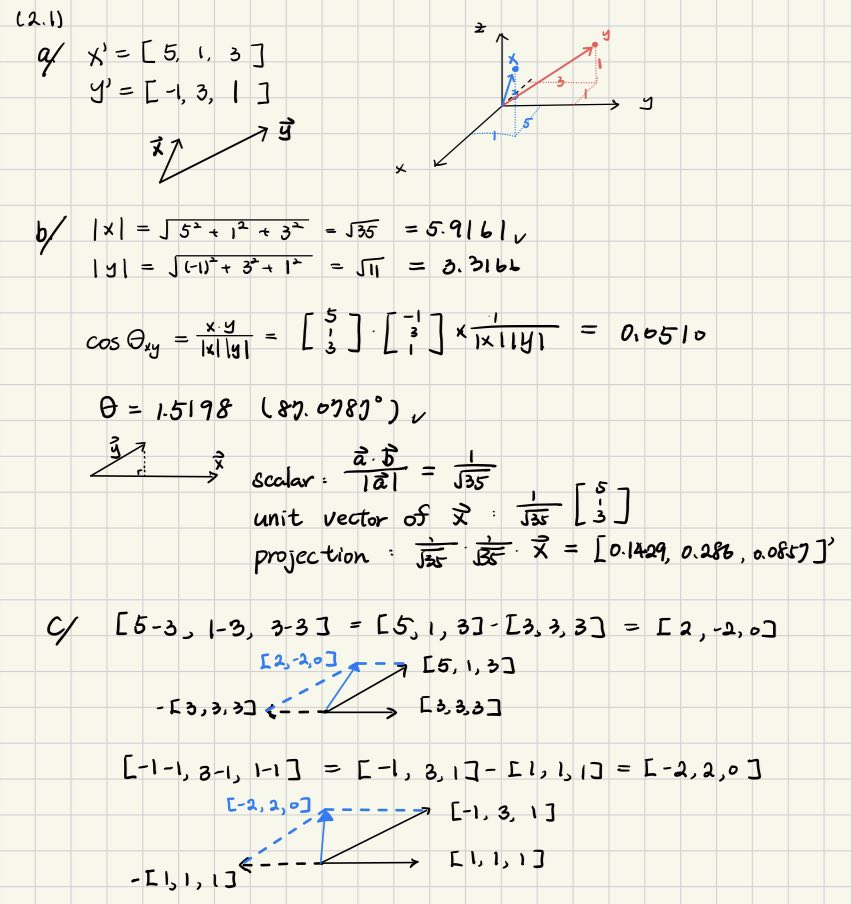 (2.1)
a/ x' = [ 5, 1, 3 ]
y' = [ -1, 3, 1 ]
x⃗ y⃗
z
x y
3 1
3 1
y
1 5
x
b/ |x| = √(5² + 1² + 3²) = √35 = 5.9161 ✓
|y| = √((-1)² + 3² + 1²) = √11 = 3.3166
cos θxy = x·y / |x||y| = [5 1 3] · [-1 3 1] × 1 / |x||y| = 0.0510
θ = 1.5198 (87.0787°) ✓
y⃗ x⃗
scalar: a⃗·b⃗ / |a⃗| = 1/√35
unit vector of x⃗ : 1/√35 [5 1 3]
projection : 1/√35 · 1/√35 · x⃗ = [0.1429, 0.286, 0.0857]'
c/ [5-3, 1-3, 3-3] = [5, 1, 3] - [3, 3, 3] = [2, -2, 0]
[2, -2, 0] [5, 1, 3]
-[3, 3, 3] [3, 3, 3]
[-1-1, 3-1, 1-1] = [-1, 3, 1] - [1, 1, 1] = [-2, 2, 0]
[-2, 2, 0] [-1, 3, 1]
-[1, 1, 1] [1, 1, 1]